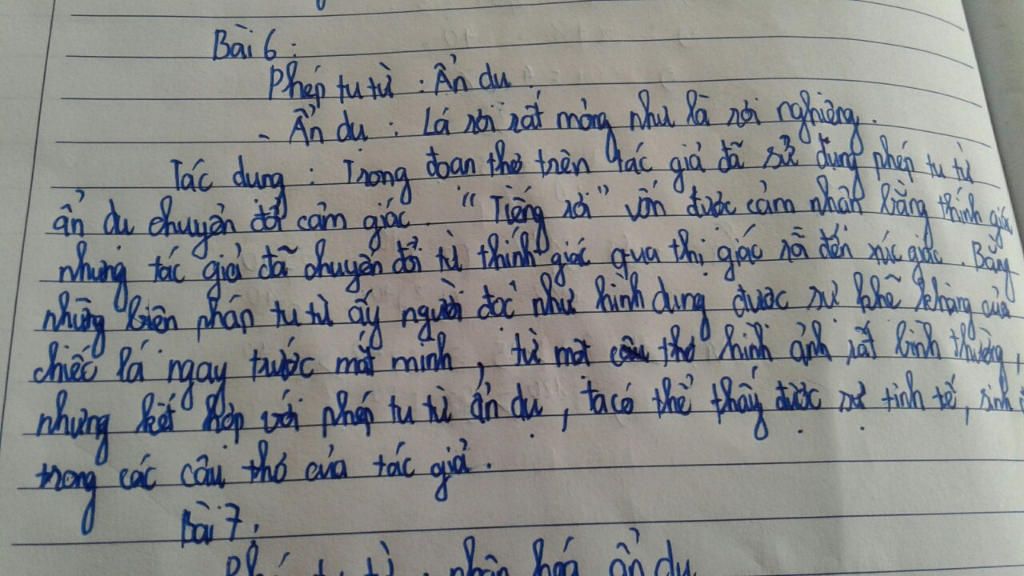 Bài 6:
Phép tu từ: Ẩn dụ.
- Ẩn dụ: Lá rơi rất mỏng như là rơi nghiêng.
Tác dụng: Trong đoạn thơ trên tác giả đã sử dụng phép tu từ
ẩn dụ chuyển đổi cảm giác. "Tiếng rơi" vốn được cảm nhận bằng thính giác
nhưng tác giả đã chuyển đổi từ thính giác qua thị giác rồi đến xúc giác. Bằng
những biện pháp tu từ ấy người đọc như hình dung được sự khẽ khàng của
chiếc lá ngay trước mắt mình, từ một câu thơ hình ảnh rất bình thường,
nhưng kết hợp với phép tu từ ẩn dụ, ta có thể thấy được sự tinh tế, sinh
trong các câu thơ của tác giả.
Bài 7:
tu từ: nhân hóa ẩn dụ